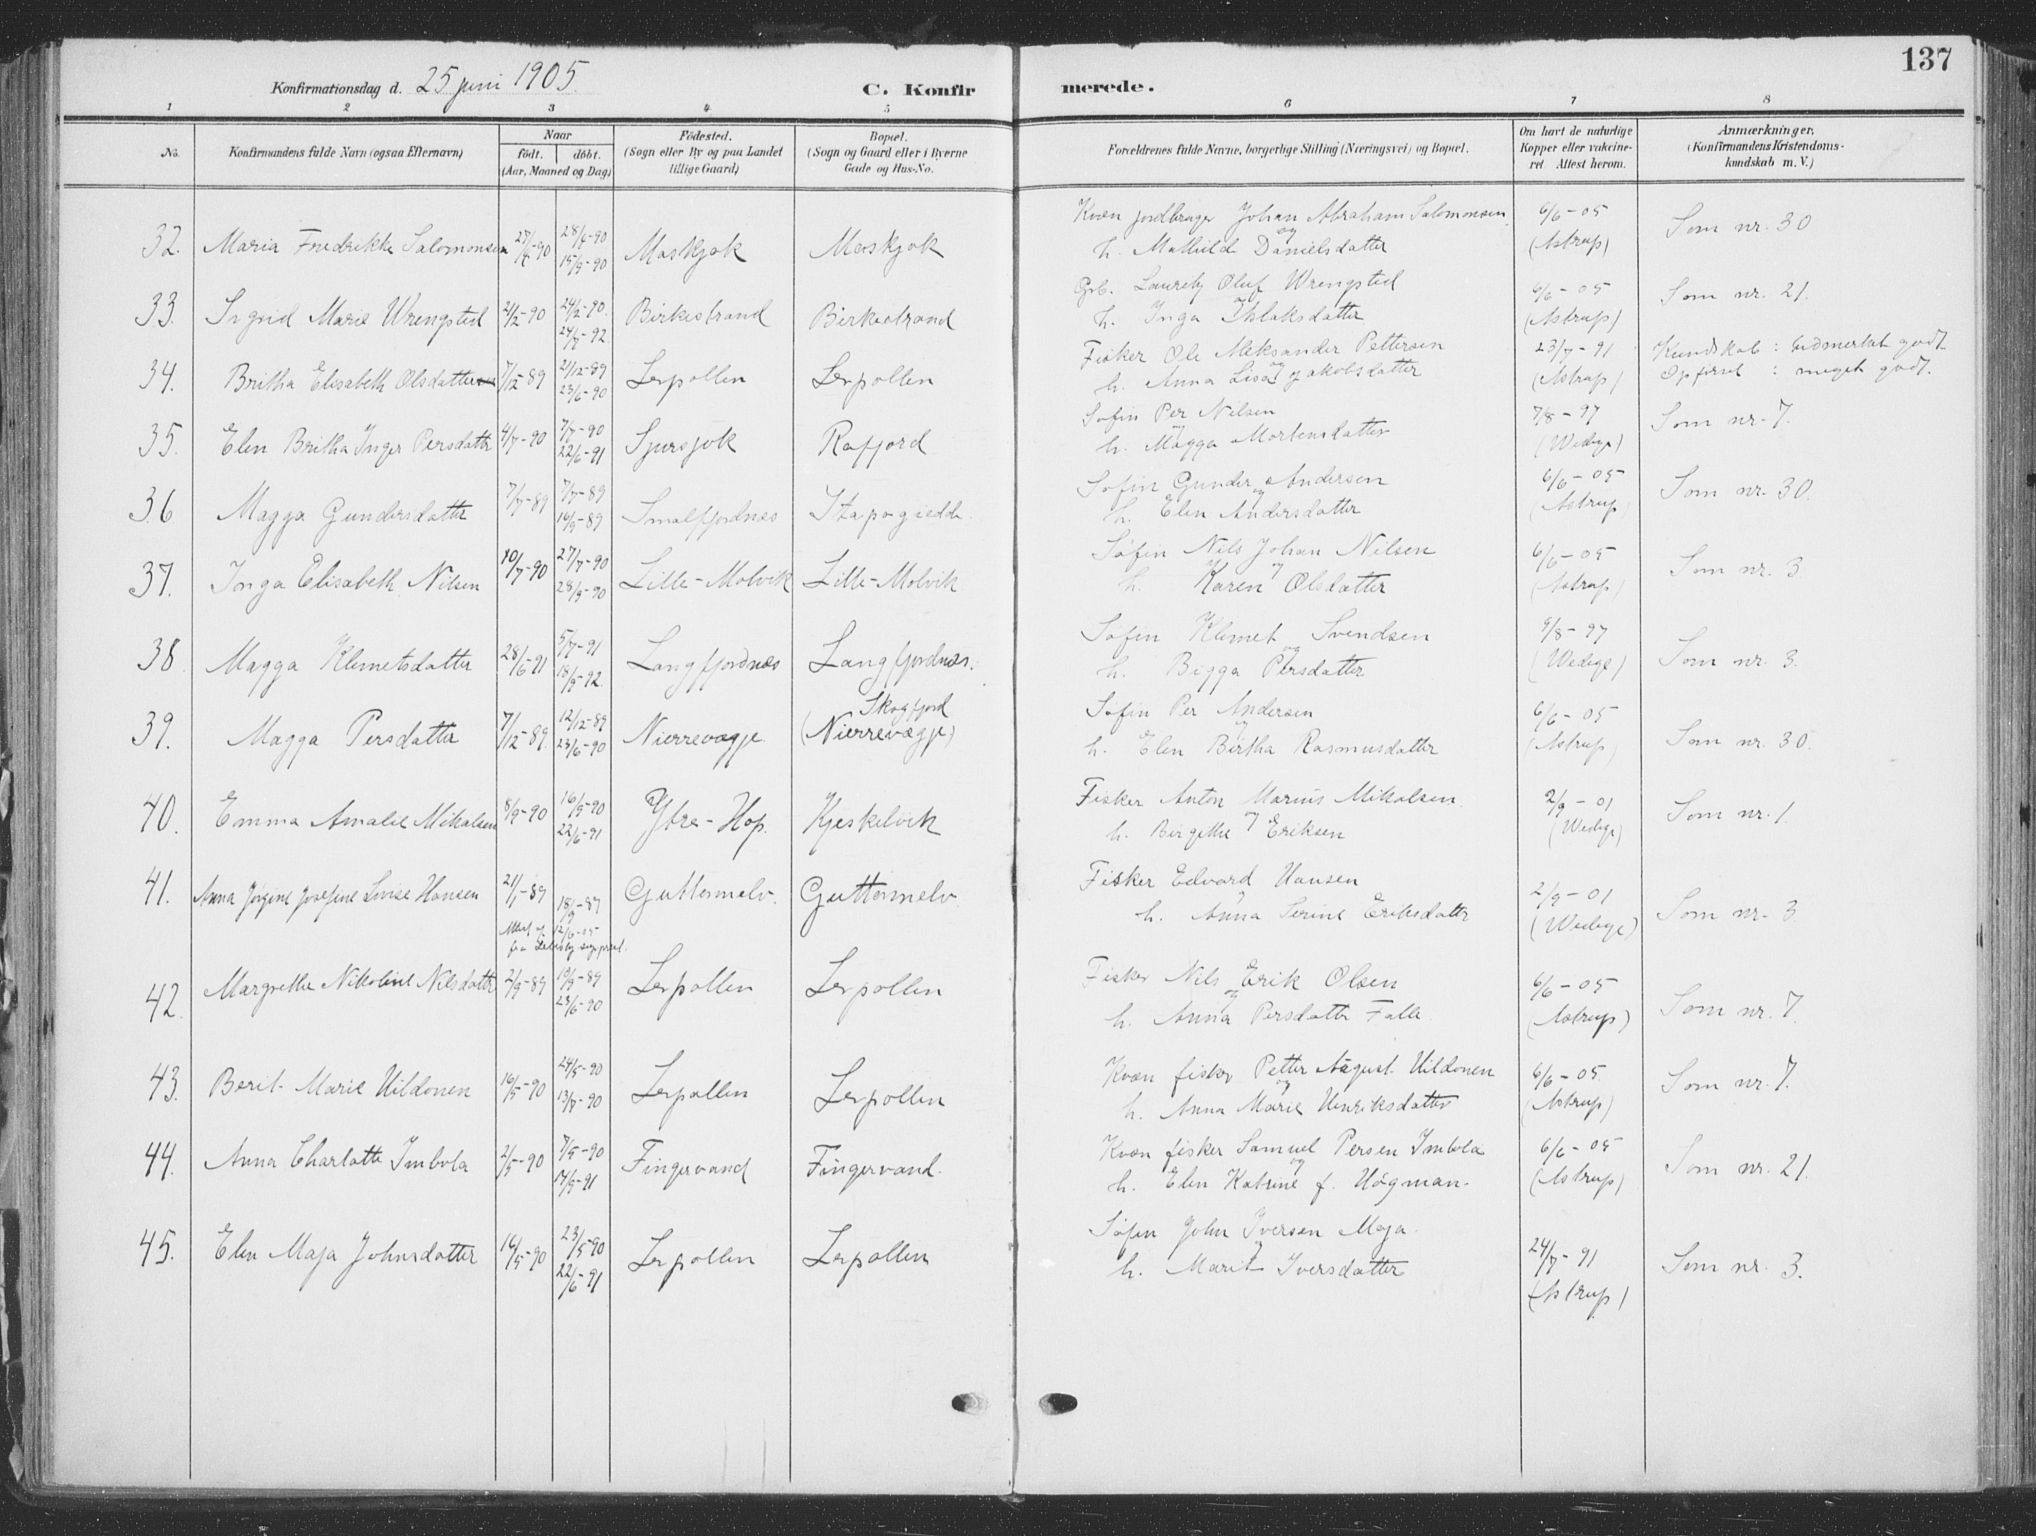 137
Konfirmationsdag d. 25 juni 1905.
C. Konfirmerede.
1 2 3 4 5 6 7 8
No. Konfirmandens fulde Navn (ogsaa Efternavn) Naar födt. döbt. (Aar, Maaned og Dag) Födested. (Sogn eller By og paa Landet tillige Gaard) Bopæl. (Sogn og Gaard eller i Byerne Gade og Hus-No. Forældrenes fulde Navne, borgerlige Stilling (Næringsvei) og Bopæl. Om havt de naturlige Kopper eller vakcineret Attest herom. Anmærkninger. (Konfirmandens Kristendomskundskab m. V.)
32. Maria Fredrikke Salomonsen 28/4-90 15/9-90 Maskjok Maskjok Kvæn jordbruger Johan Abraham Salomonsen og h. Mathilde Danielsdatter 6/6-05 (Astrup) Som nr. 30
33. Ingrid Marie Wrengsted 2/2-90 24/2-90. 24/7-92 Birkestrand Birkestrand Grb. Lauretz Oluf Wrengsted og h. Inga Aslaksdatter 6/6-05 (Astrup) Som nr. 21.
34. Britha Elisabeth Olsdatter 7/12-89 21/12-89 23/6-90 Lerpollen Lerpollen Fisker Ole Aleksander Pettersen og h. Anna Lisa Jakobsdatter 23/7-91 (Astrup) Kundskab: bedmerket godt Opførsel: meget godt.
35. Elen Britha Inger Persdatter 4/7-90 7/7-90 22/6-91 Sjursjok Rafjord Sofin Per Nilsen og h. Magga Mortensdatter 7/8-97 (Wedege) Som nr. 7.
36 Magga Gundersdatter 7/7-89 7/7-89 16/9-89 Smalfjordnæs Itapogiedde. Sofin Gunder Andersen og h. Elen Andersdatter 6/6-05 (Astrup) Som nr. 30.
37. Inga Elisabeth Nilsen 10/7-90 27/7-90 28/9-90 Lille-Molvik Lille-Molvik Søfin Nils Johan Nilsen og h. Karen Olsdatter 6/6-05 (Astrup) Som nr. 3
38. Magga Klemetsdatter 28/6-91 5/7-91 18/9-92. Langfjordnæs Langfjordnæs. Søfin Klemet Svendsen og h. Bigga Persdatter 9/8-97 (Wedege) Som nr. 3.
39. Magga Persdatter 7/12-89. 12/12-89 23/6-90 Nierrevægge. Skogfjord (Nierrevægge) Søfin Per Andersen og h. Elen Birtha Rasmusdatter 6/6-05 (Astrup) Som nr. 30.
40. Emma Amalie Mikalsen 8/9-90 16/9-90 22/6-91 Ytre-Hop. Kjeskelvik Fisker Anton Marius Mikalsen. og h. Birgithe Eriksen 2/9-01 (Wedege) Som nr. 1.
41. Anna Jørgine Josefine Lovise Hansen 21/1-89 18/9-89 Guttormelv. Guttormelv. Fisker Edvard Hansen og h. Anna Serine Eriksdatter 2/9-01 (Wedege) Som nr. 3.
12/6-05 fra Lebesby
42. Margrethe Nikoline Nilsdatter 2/9-89 19/9-89 23/6-90 Lerpollen Lerpollen Fisker Nils Erik Olsen og h. Anna Persdatter Falle. 6/6-05 (Astrup) Som nr. 7.
43. Berit Marie Uildonen 16/5-90 24/5-90 13/7-90 Lerpollen Lerpollen Kvæn fisker Petter August Uildonen og h. Anna Marie Henriksdatter 6/6-05. (Astrup) Som nr. 7.
44. Anna Charlotte Imbola 2/5-90 7/5-90 14/9-91 Fingervand Fingervand. Kvæn fisker Samuel Persen Imbola og h. Elen Katrine f. Högman. 6/6-05 (Astrup) Som nr. 21.
45. Elen Maja Johnsdatter 16/5-90 23/5-90 22/6-91 Lerpollen Lerpollen Søfin John Iversen Maja. og h. Marit Iversdatter 24/7-91 (Astrup) Som nr. 3.